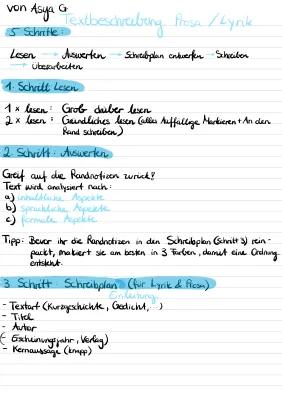 von Asya G.
Textbeschreibung Prosa / Lyrik
5 Schritte:
Lesen → Auswerten → Schreibplan entwerfen → Schreiben
→ Überarbeiten
1. Schritt Lesen
1 x lesen: Grob drüber lesen
2 x lesen: Gründliches lesen (alles Auffällige Markieren + An den
Rand schreiben)
2. Schritt: Auswerten
Greif auf die Randnotizen zurück!
Text wird analysiert nach:
a) inhaltliche Aspekte
b) sprachliche Aspekte
c) formale Aspekte
Tipp: Bevor ihr die Randnotizen in den Schreibplan (Schritt 3) rein-
packt, markiert sie am besten in 3 Farben, damit eine Ordnung
entsteht.
3. Schritt: Schreibplan (für Lyrik & Prosa)
Einleitung
- Textart (Kurzgeschichte, Gedicht, ...)
- Titel
- Autor
- (Erscheinungsjahr, Verlag)
- Kernaussage (knapp)